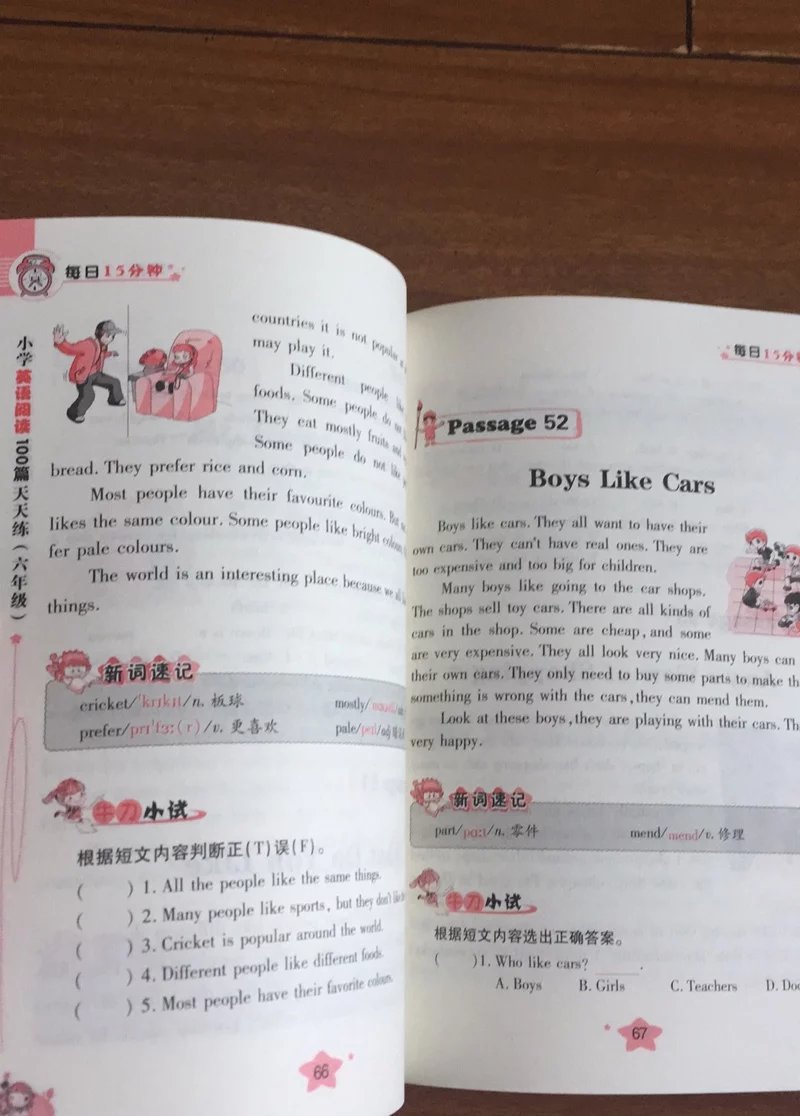 每日15分钟
小学英语阅读100篇天天练(六年级)
countries it is not popular
may play it.
Different people
foods. Some people do
They eat mostly fruits and
Some people do not like
bread. They prefer rice and corn.
Most people have their favourite colours. But
likes the same colour. Some people like bright colours
fer pale colours.
The world is an interesting place because we all
things.
新词速记
cricket/ˈkrɪkɪt/n. 板球 mostly/
prefer/prɪˈfɜː(r)/v. 更喜欢 pale/peɪl/adj
牛刀小试
根据短文内容判断正(T)误(F)。
( ) 1. All the people like the same things.
( ) 2. Many people like sports, but they don't like
( ) 3. Cricket is popular around the world.
( ) 4. Different people like different foods.
( ) 5. Most people have their favorite colours.
66
每日15分钟
Passage 52
Boys Like Cars
Boys like cars. They all want to have their
own cars. They can't have real ones. They are
too expensive and too big for children.
Many boys like going to the car shops.
The shops sell toy cars. There are all kinds of
cars in the shop. Some are cheap, and some
are very expensive. They all look very nice. Many boys can
their own cars. They only need to buy some parts to make th
something is wrong with the cars, they can mend them.
Look at these boys, they are playing with their cars. Th
very happy.
新词速记
part/pɑːt/n. 零件 mend/mend/v. 修理
牛刀小试
根据短文内容选出正确答案。
( )1. Who like cars? ____.
A. Boys B. Girls C. Teachers D. Doc
67